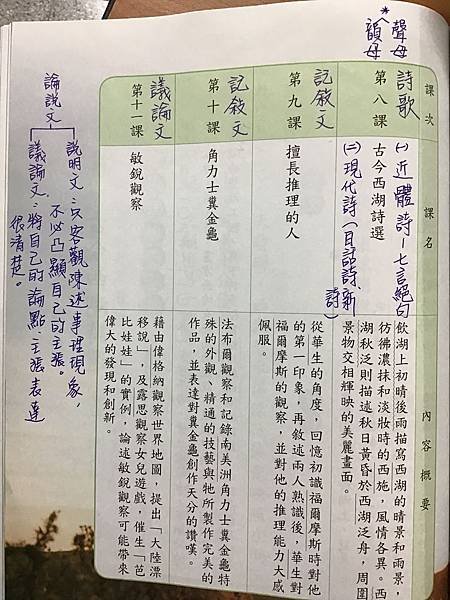 *聲母
韻母
課次
課名
內容概要
詩歌
第八課
古今西湖詩選
㈠近體詩-七言絕句
㈡現代詩(白話詩、新
詩)
飲湖上初晴後雨描寫西湖的晴景和雨景,
彷彿濃抹和淡妝時的西施,風情各異。西
湖秋泛則描述秋日黃昏於西湖泛舟,周圍
景物交相輝映的美麗畫面。
記敘文
第九課
擅長推理的人
從華生的角度,回憶初識福爾摩斯時對他
的第一印象,再敘述兩人熟識後,華生對
福爾摩斯的觀察,並對他的推理能力大感
佩服。
記敘文
第十課
角力士糞金龜
法布爾觀察和記錄南美洲角力士糞金龜特
殊的外觀、精通的技藝與牠所製作完美的
作品,並表達對糞金龜創作天分的讚嘆。
議論文
第十一課
敏銳觀察
藉由偉格納觀察世界地圖,提出「大陸漂
移說」,及露思觀察女兒遊戲,催生「芭
比娃娃」的實例,論述敏銳觀察可能帶來
偉大的發現和創新。
論說文
說明文:只客觀陳述事理現象,
不必凸顯自己的主張。
議論文:將自己的論點、主張表達
很清楚。